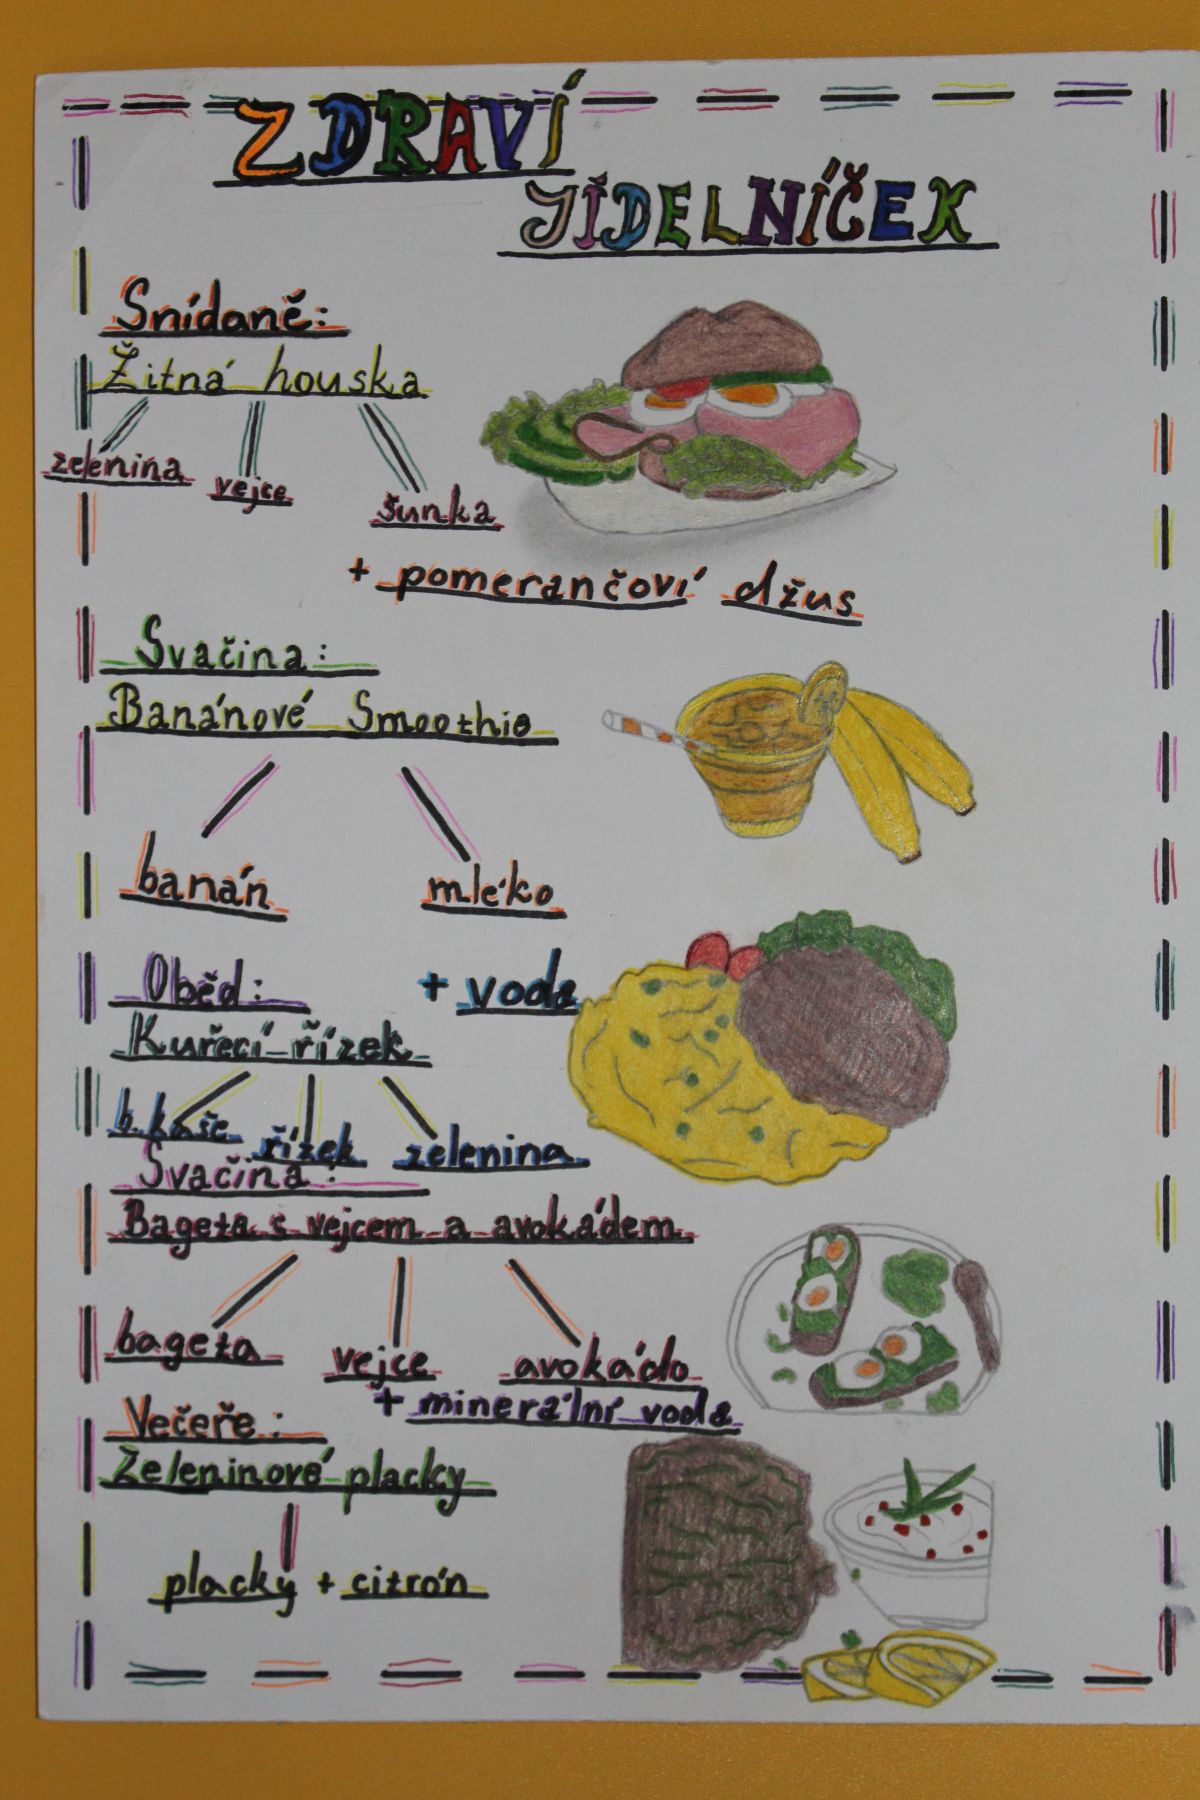 ZDRAVÍ
JÍDELNÍČEK
Snídaně:
Žitná houska
zelenina vejce šunka
+ pomerančoví džus
Svačina:
Banánové Smoothie
banán mléko
Oběd: + voda
Kuřecí řízek
b. kaše řízek zelenina
Svačina:
Bageta s vejcem a avokádem
bageta vejce avokádo
+ minerální voda
Večeře:
Zeleninové placky
placky + citrón